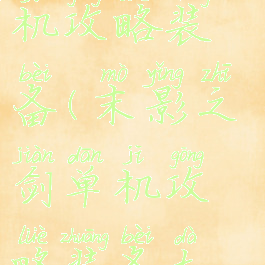 机攻略装
bèi mò yǐng zhī
备(末影之
jiàn dān jī gōng
剑单机攻
lüè zhuāng bèi dà
略装备大